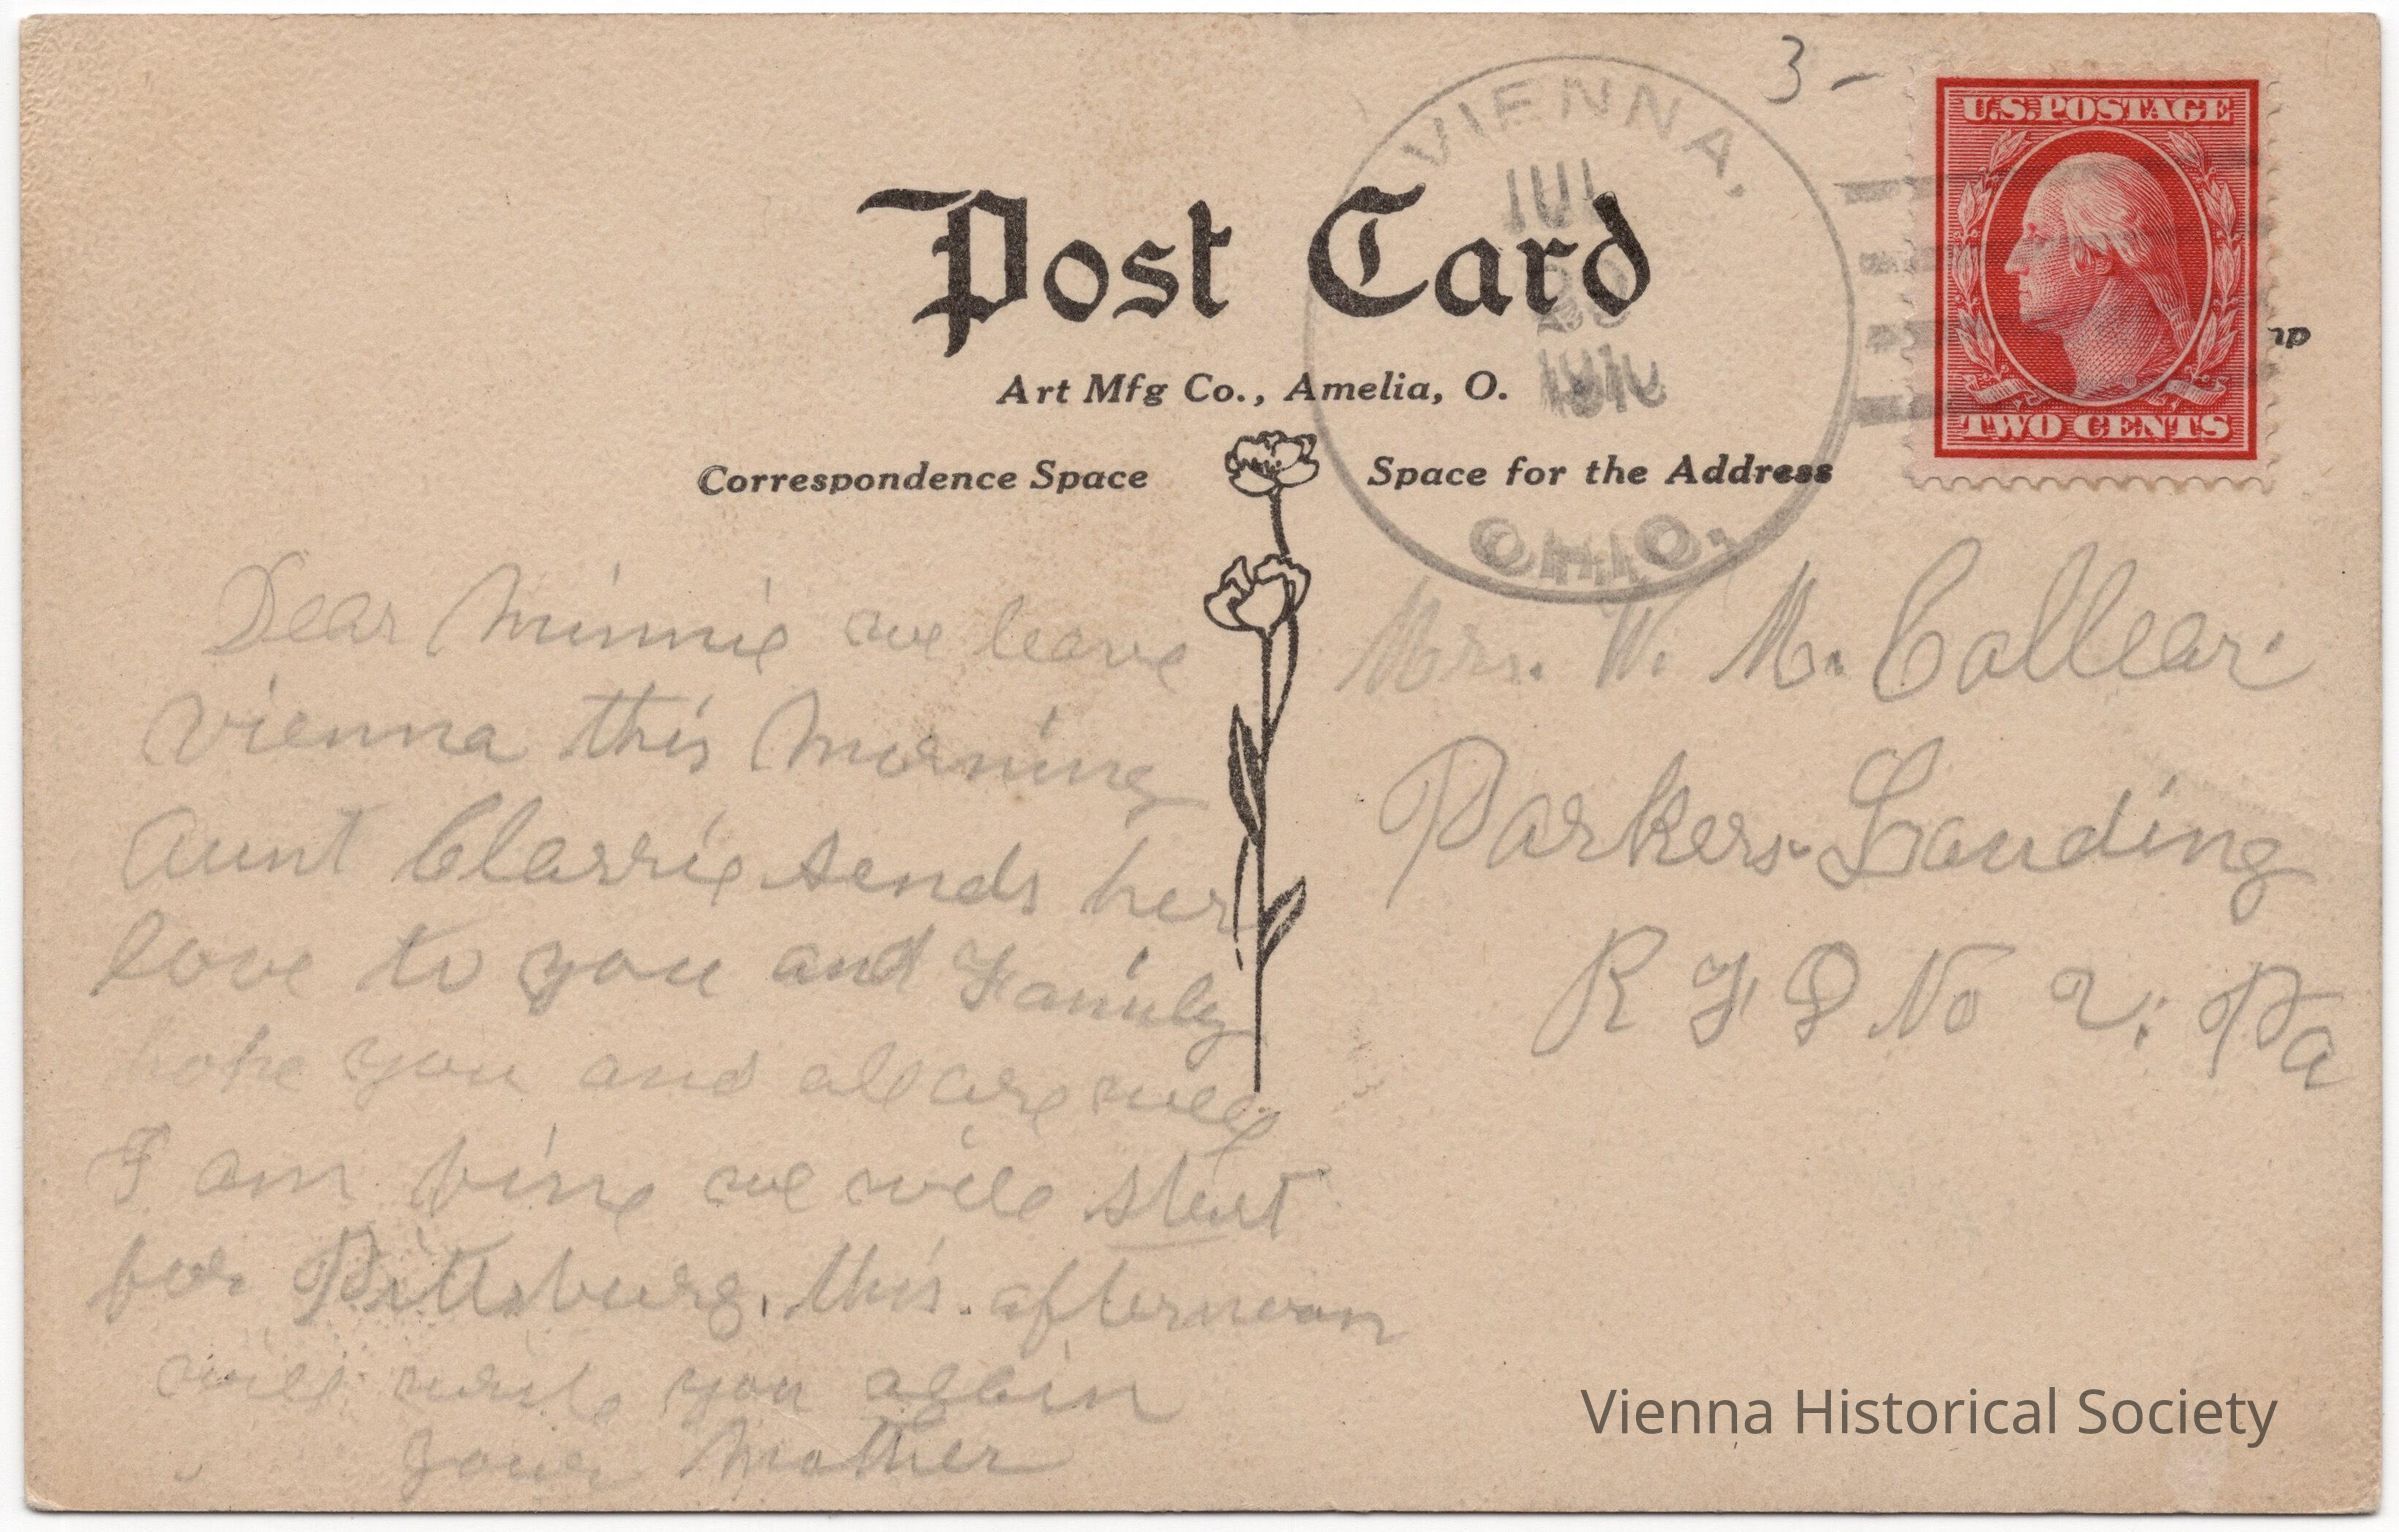 3 -
U.S. POSTAGE
TWO CENTS
VIENNA,
JUL
1910
OHIO.
Post Card
Art Mfg Co., Amelia, O.
Correspondence Space
Space for the Address
Dear Minnie we leave
Vienna this Morning
Aunt Clarrie sends her
love to you and Family
hope you and all are well
I am fine we will start
for Pittsburg. this. afternoon
will write you again
your Mother
Mrs. W. M. Collear.
Parkers Landing
R F D No 2: Pa
Vienna Historical Society